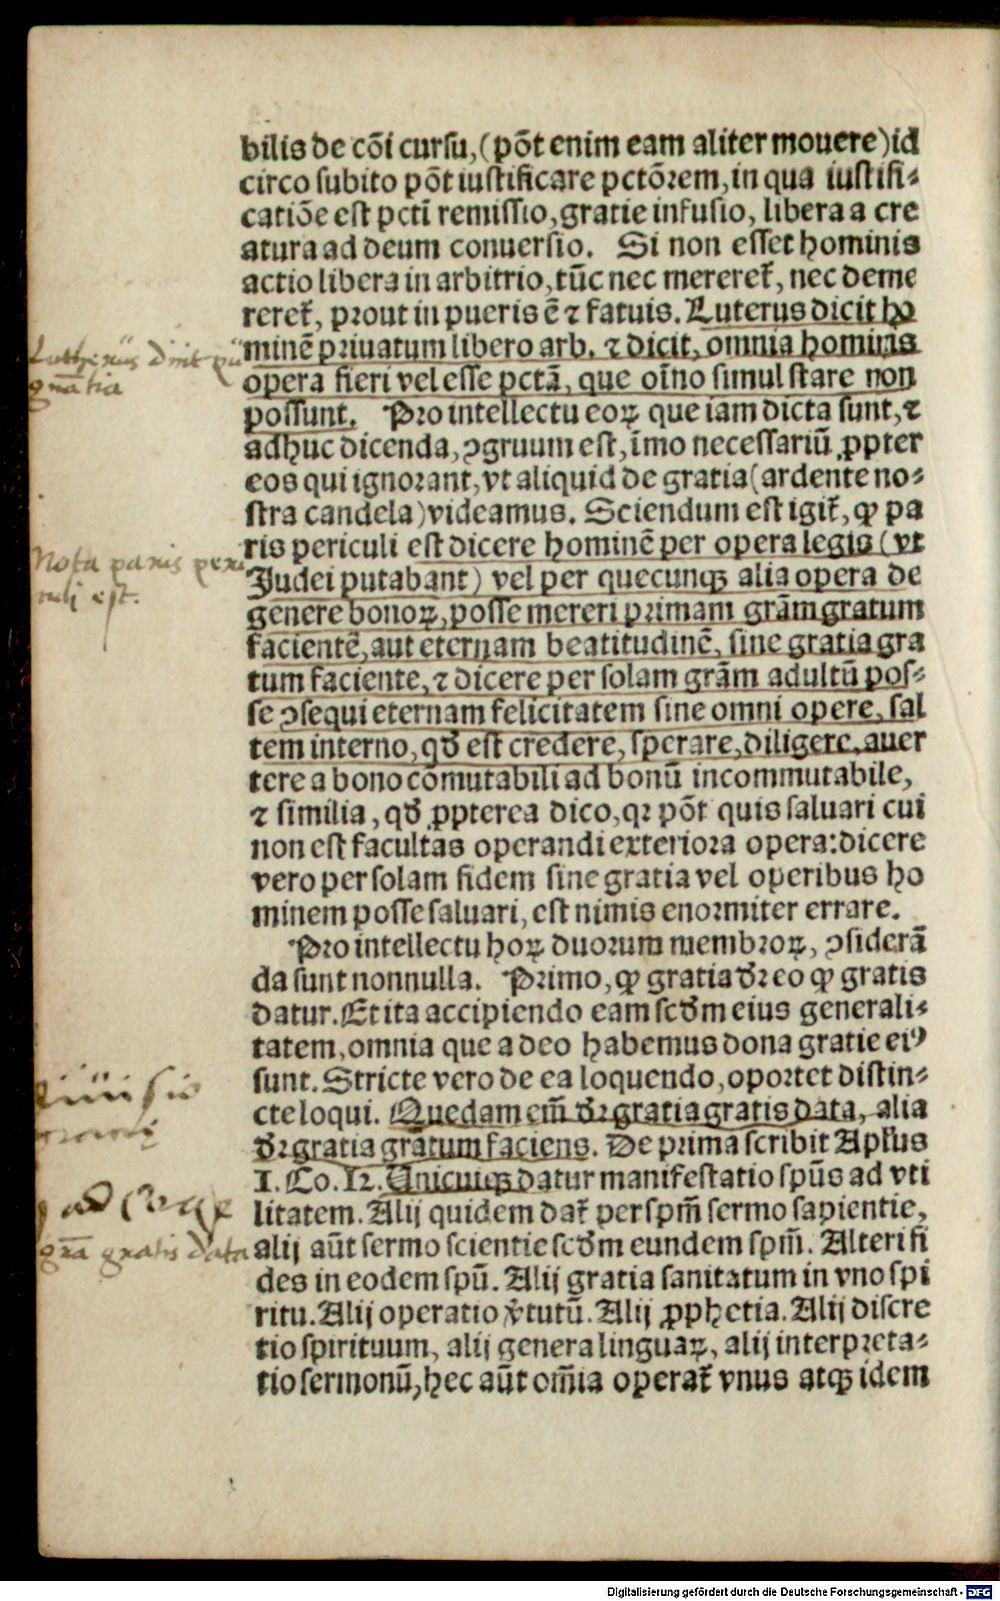 bilis de cōi cursu,(pōt enim eam aliter mouere)id
circo subito pōt iustificare pctōrem,in qua iustifi⸗
catiōe est pcti remissio,gratie infusio, libera a cre
atura ad deum conuersio. Si non esset hominis
actio libera in arbitrio,tūc nec mereret̃, nec deme
reret̃, prout in pueris ē ⁊ fatuis. Luterus dicit ho
minē priuatum libero arb. ⁊ dicit, omnia hominis
opera fieri vel esse pctā, que oīno simul stare non
possunt. Pro intellectu eoꝝ que iam dicta sunt,⁊
adhuc dicenda, ꝯgruum est, īmo necessariū ꝓpter
eos qui ignorant, vt aliquid de gratia(ardente no⸗
stra candela)videamus. Sciendum est igit̃, ꝙ pa
ris periculi est dicere hominē per opera legis(vt
Judei putabant) vel per quecunqꝫ alia opera de
genere bonoꝝ, posse mereri primam grām gratum
facientē, aut eternam beatitudinē, sine gratia gra
tum faciente, ⁊ dicere per solam grām adultū pos⸗
se ꝯsequi eternam felicitatem sine omni opere, sal
tem interno, qđ est credere, sperare, diligere, auer
tere a bono cōmutabili ad bonū incommutabile,
⁊ similia, qđ ꝓpterea dico, qꝛ pōt quis saluari cui
non est facultas operandi exteriora opera: dicere
vero per solam fidem sine gratia vel operibus ho
minem posse saluari, est nimis enormiter errare.
Pro intellectu hoꝝ duorum membroꝝ, ꝯsiderā
da sunt nonnulla. Primo, ꝙ gratia dr̃ eo ꝙ gratis
datur. Et ita accipiendo eam scđm eius generali⸗
tatem, omnia que a deo habemus dona gratie eiꝰ
sunt. Stricte vero de ea loquendo, oportet distin⸗
cte loqui. Quedam em̄ dr̃ gratia gratis data, alia
dr̃ gratia gratum faciens. De prima scribit Apl̃us
1. Co. 12. Unicuiqꝫ datur manifestatio spūs ad vti
litatem. Alij quidem dat̃ per spm̄ sermo sapientie,
alij aūt sermo scientie scđm eundem spm̄. Alteri fi
des in eodem spū. Alij gratia sanitatum in vno spi
ritu. Alij operatio v̄tutū. Alij ꝓphetia. Alij discre
tio spirituum, alij genera linguaꝝ, alij interpreta⸗
tio sermonū, hec aūt om̄ia operat̃ vnus atqꝫ idem
Nota paris peri
culi est.
grā gratis data
Digitalisierung gefördert durch die Deutsche Forschungsgemeinschaft - DFG